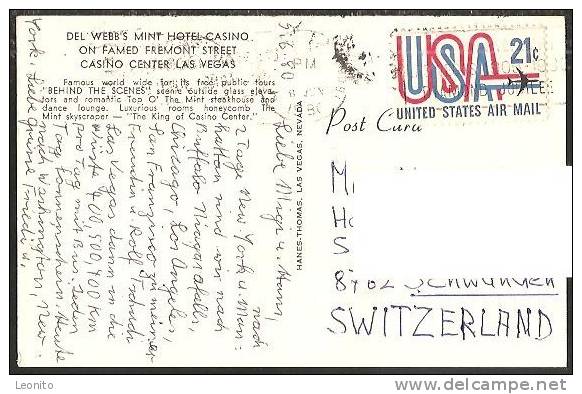 DEL WEBB'S MINT HOTEL-CASINO
ON FAMED FREMONT STREET
CASINO CENTER LAS VEGAS
Famous world wide for: its free public tours
"BEHIND THE SCENES"; scenic outside glass eleva-
tors and romantic Top O' The Mint steakhouse and
dance lounge. Luxurious rooms honeycomb The
Mint skyscraper — "The King of Casino Center."
5.6.80
Liebe
nach
2 Tage New York u. Man-
hattan sind wir nach
Buffalo Niagarafälle,
Chicago, Los Angeles,
San Franzisco zu meiner
Freundin u. Rolf
Las Vegas dann in die
Wüste 400, 500, 400 km
pro Tag mit Bus. Jeden
Tag Sonnenschein. Heute
nach Washington, New-
York. Liebe
Grüsse
HANES-THOMAS, LAS VEGAS, NEVADA
PM
USA 21c
UNITED STATES AIR MAIL
Post Card
SWITZERLAND
Leonito
delcampe.net